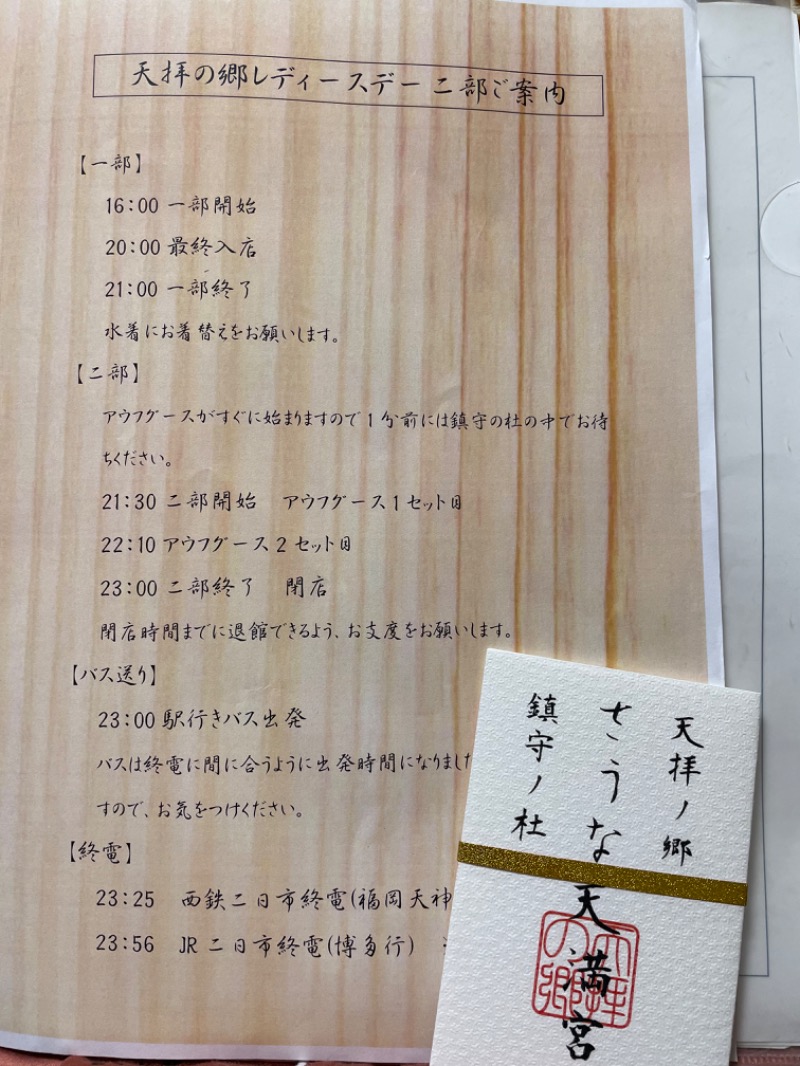 天拝の郷レディースデー二部ご案内
【一部】
16:00 一部開始
20:00 最終入店
21:00 一部終了
水着にお着替えをお願いします。
【二部】
アウフグースがすぐに始まりますので1分前には鎮守の杜の中でお待
ちください。
21:30 二部開始 アウフグース1セット目
22:10 アウフグース2セット目
23:00 二部終了 閉店
閉店時間までに退館できるよう、お支度をお願いします。
【バス送り】
23:00 駅行きバス出発
バスは終電に間に合うように出発時間になりました
すので、お気をつけください。
【終電】
23:25 西鉄二日市終電(福岡天神
23:56 JR二日市終電(博多行)
天拝ノ郷
さうな天満宮
鎮守ノ杜
天拝
の郷